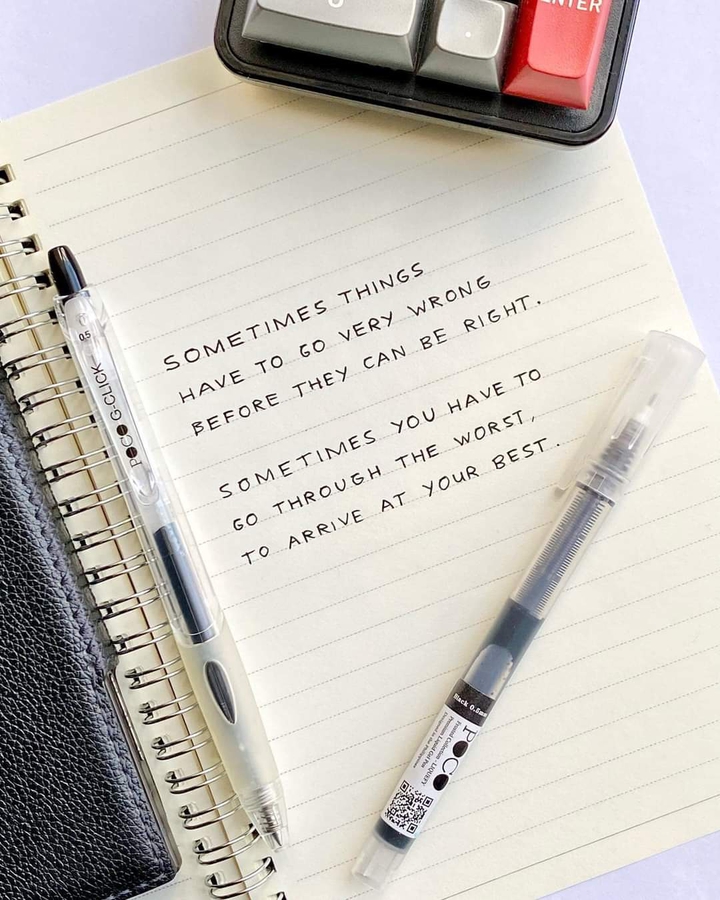 ENTER
SOMETIMES THINGS
HAVE TO GO VERY WRONG
BEFORE THEY CAN BE RIGHT.
SOMETIMES YOU HAVE TO
GO THROUGH THE WORST,
TO ARRIVE AT YOUR BEST.
0.5
POCO G-CLICK
Black 0.5mm
POCO
Pastel Collection - LIQUIFY
Premium Liquid Gel Pen